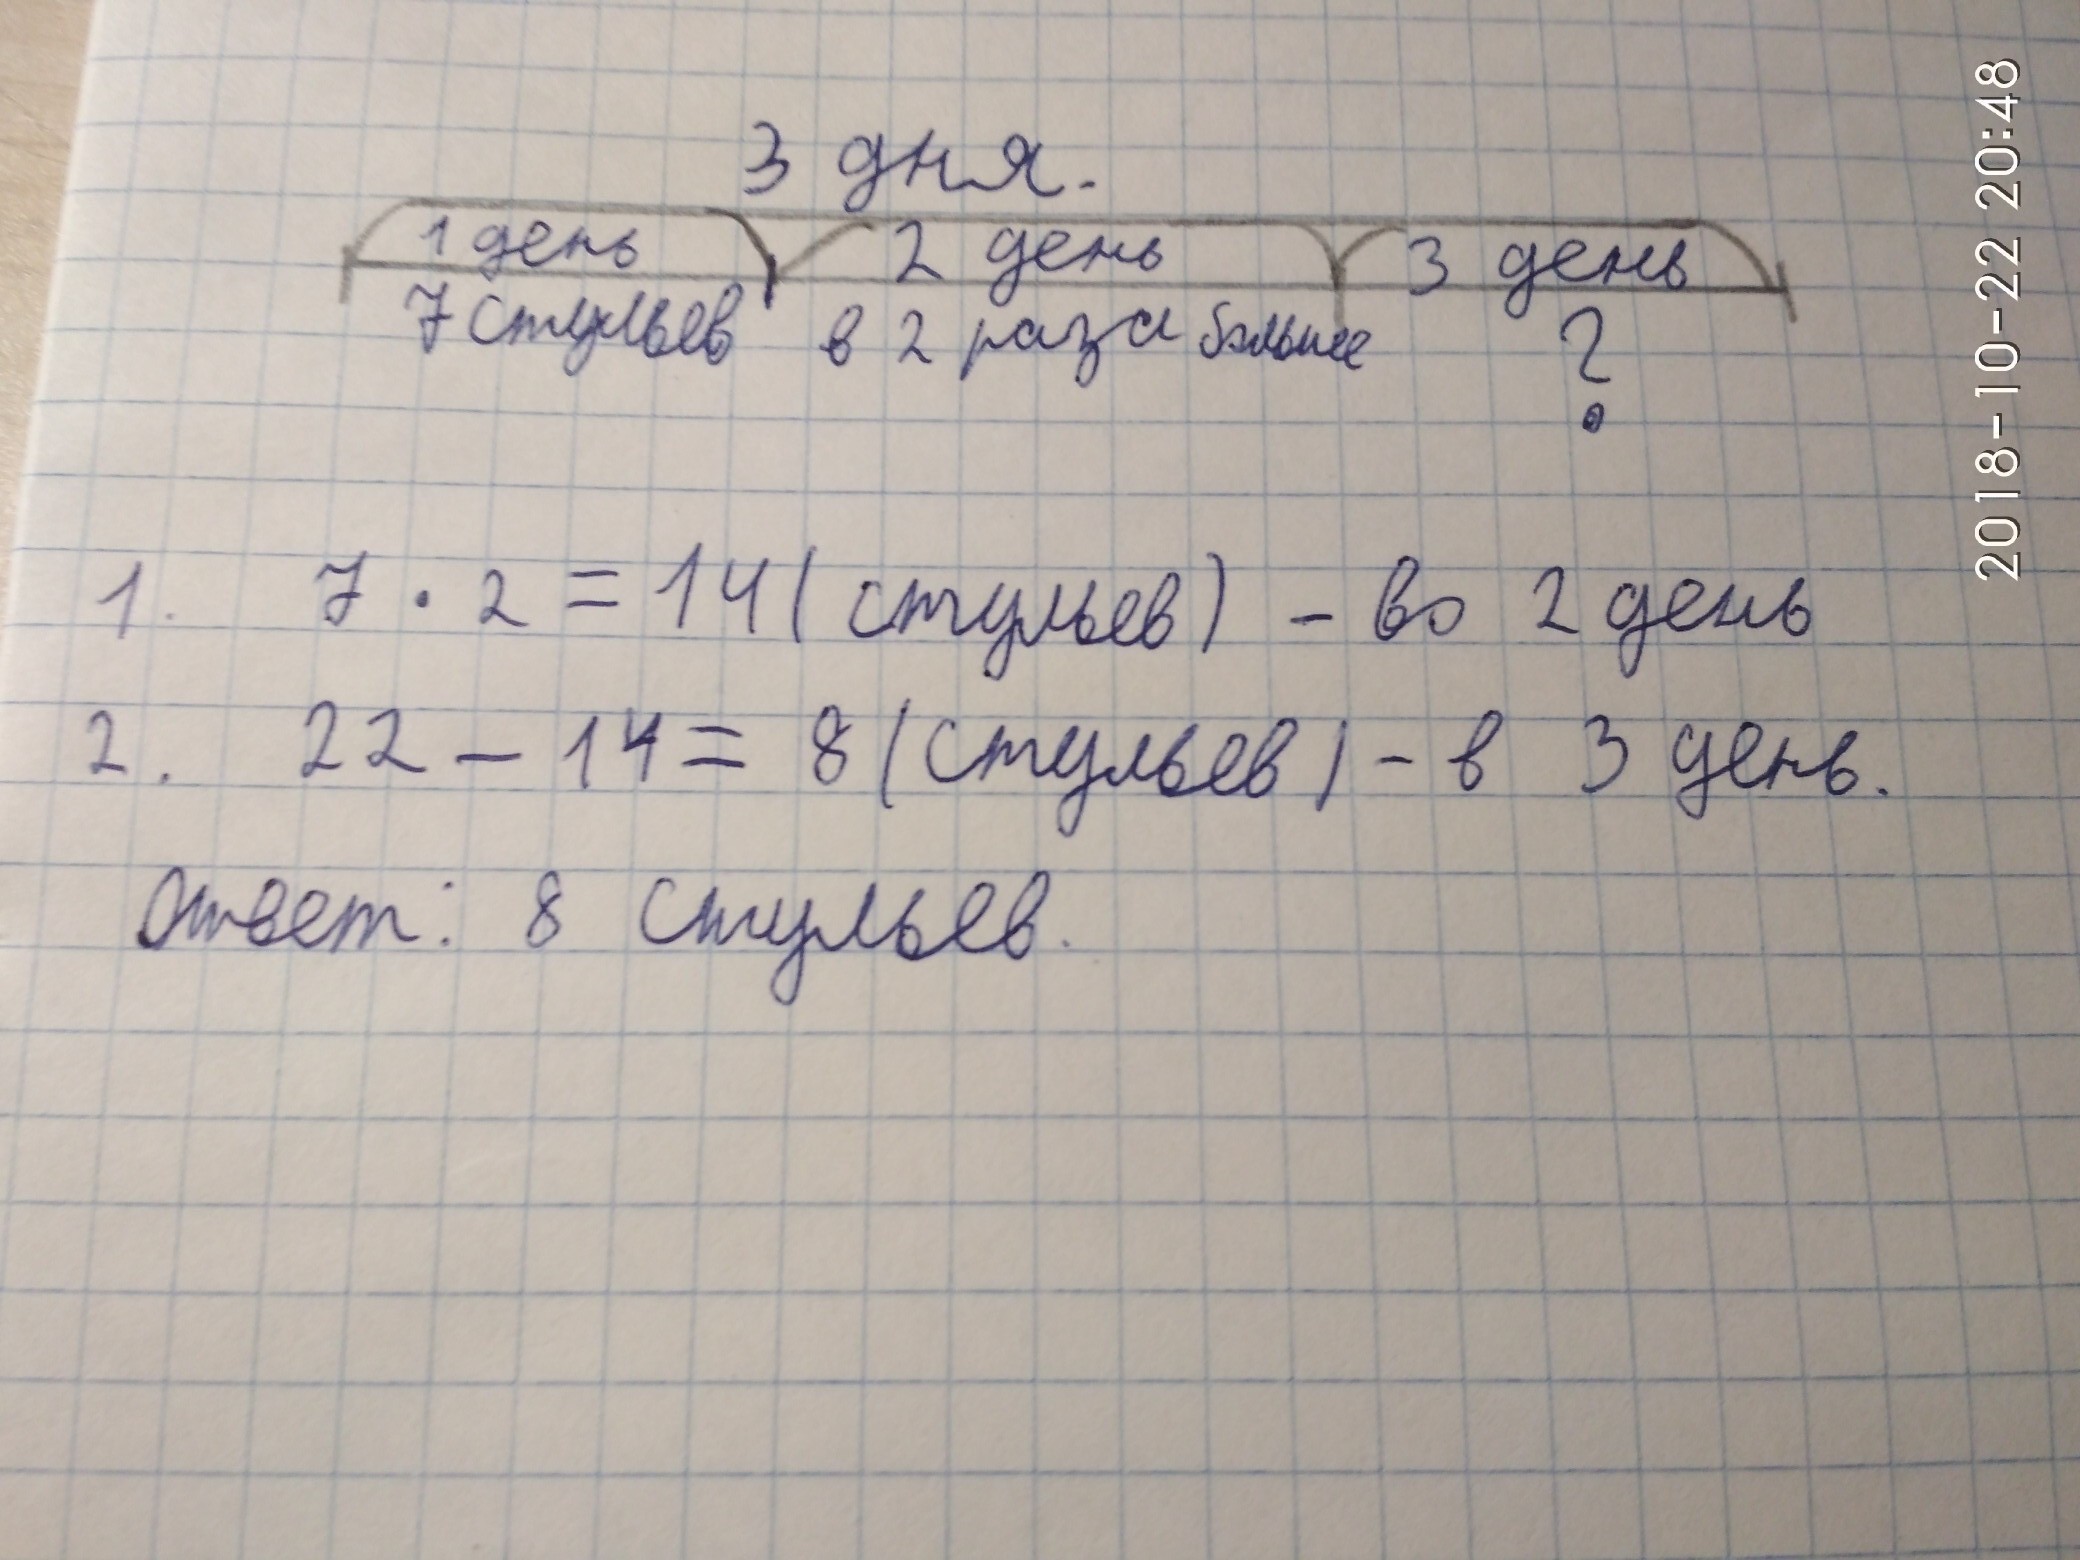 3 дня.
1 день 2 день 3 день
7 стульев в 2 раза больше ?
1. 7 · 2 = 14 (стульев) - во 2 день
2. 22 - 14 = 8 (стульев) - в 3 день.
Ответ: 8 стульев.
2018-10-22 20:48